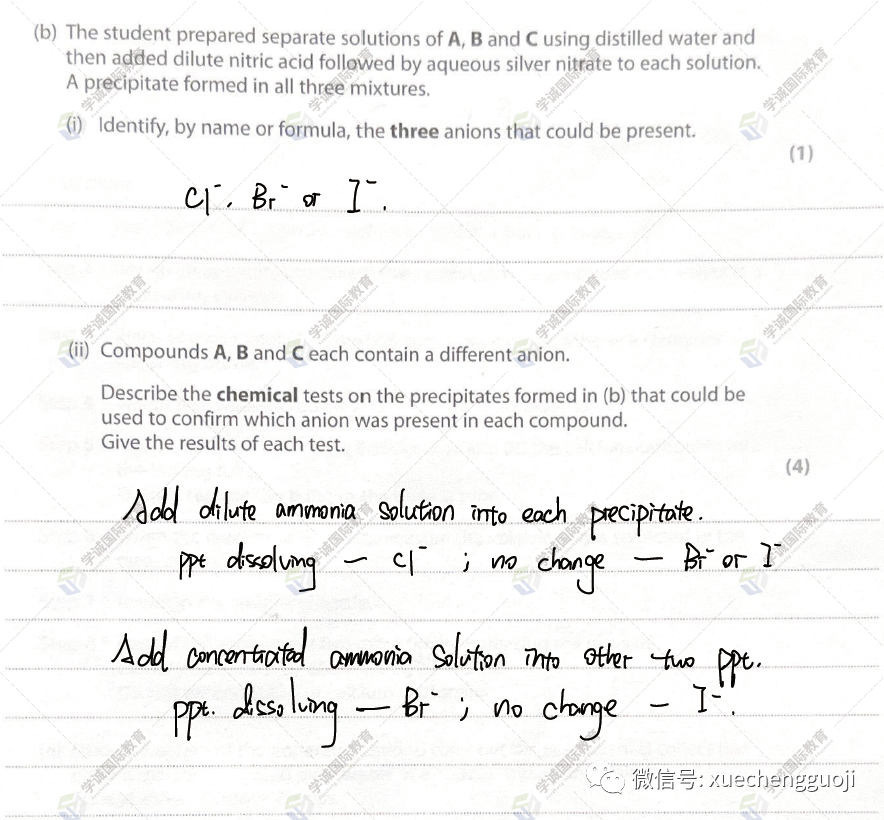 (b) The student prepared separate solutions of A, B and C using distilled water and
then added dilute nitric acid followed by aqueous silver nitrate to each solution.
A precipitate formed in all three mixtures.
(i) Identify, by name or formula, the three anions that could be present.
(1)
Cl⁻, Br⁻ or I⁻.
(ii) Compounds A, B and C each contain a different anion.
Describe the chemical tests on the precipitates formed in (b) that could be
used to confirm which anion was present in each compound.
Give the results of each test.
(4)
Add dilute ammonia solution into each precipitate.
ppt dissolving – Cl⁻ ; no change – Br⁻ or I⁻
Add concentrated ammonia solution into other two ppt.
ppt. dissolving – Br⁻ ; no change – I⁻.
微信号: xuechengguoji
学诚国际教育